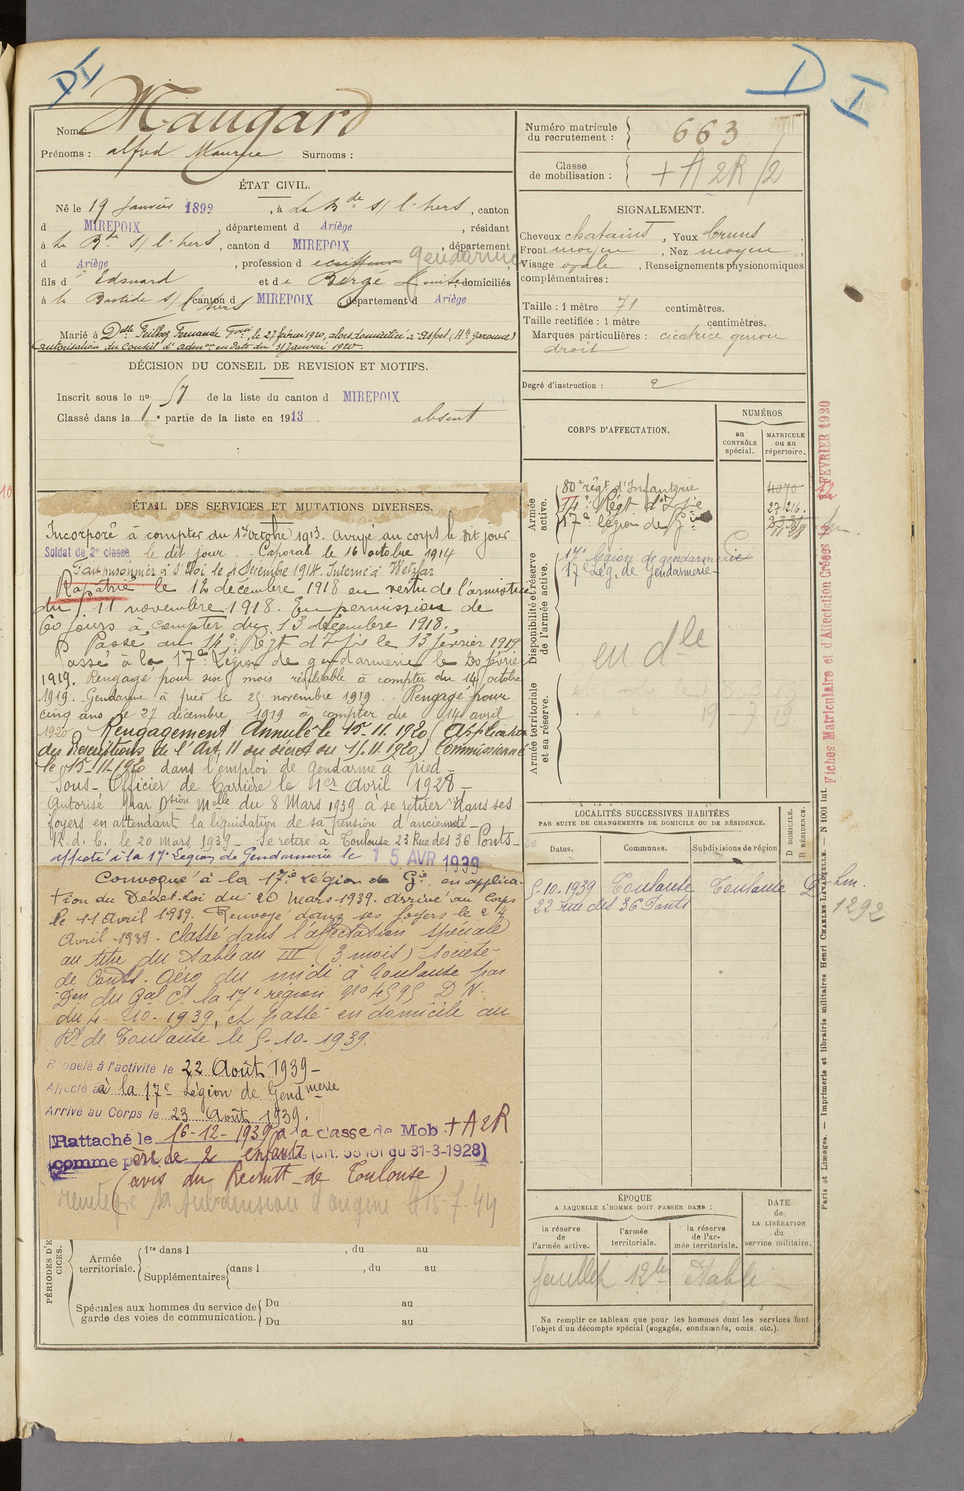 DI
D
I
Nom Maugard
Prénoms : Alfred Maurice Surnoms :
Numéro matricule du recrutement : 663
Classe de mobilisation : + A 2R /2
ÉTAT CIVIL.
Né le 19 Janvier 1892, à La Bde s/ l'hers, canton
d MIREPOIX, département d Ariège, résidant
à La Bde s/ l'hers, canton d MIREPOIX, département
d Ariège, profession d coiffeur Gendarme
fils d' Edouard et de Bergé Louise domiciliés
à la Bastide s/ l'hers canton d MIREPOIX département d Ariège
Marié à Delle Feilhes Fernande Fçoise, le 27 février 1920, alors domiciliée à Aspet (Hte Garonne)
autorisation du Conseil d'admon en date du 31 Janvier 1920.
DÉCISION DU CONSEIL DE REVISION ET MOTIFS.
Inscrit sous le no 57 de la liste du canton d MIREPOIX
Classé dans la 1e partie de la liste en 1913. absent
SIGNALEMENT.
Cheveux chatains, Yeux bruns,
Front moyen, Nez moyen,
Visage ovale, Renseignements physionomiques
complémentaires :
Taille : 1 mètre 71 centimètres.
Taille rectifiée : 1 mètre centimètres.
Marques particulières : cicatrice genou
droit
Degré d'instruction : 2
CORPS D'AFFECTATION.
NUMÉROS
au CONTRÔLE spécial.
MATRICULE ou au répertoire.
Armée active.
80e régt d'Infanterie 4070
14e Régt d'Ifie 27216
17e légion de Gie
Disponibilité et réserve de l'armée active.
17e légion de gendarmerie
17e Lég. de Gendarmerie
en dle
Armée territoriale et sa réserve.
Fiches Matriculaire et d'Affectation Créées FÉVRIER 1920
DÉTAIL DES SERVICES ET MUTATIONS DIVERSES.
Incorporé à compter du 1er octobre 1913. Arrivé au corps le dit jour
Soldat de 2e classe le dit jour. Caporal le 16 octobre 1914
Fait prisonnier à St Eloi le 4 Décembre 1914. Interné à Wetzlar
Rapatrié le 12 décembre 1918 en vertu de l'armistice
du 11 novembre 1918. En permission de
60 jours à compter du 13 décembre 1918.
Passé au 14e Régt d'Ifie le 13 février 1919
Passé à la 17e Légion de gendarmerie le 20 février
1919. Rengagé pour six mois résiliable à compter du 14 octobre
1919. Gendarme à pied le 25 novembre 1919. Rengagé pour
cinq ans le 27 décembre 1919 à compter du 14 avril
1920. Rengagement Annulé le 15-11-1920 (Application
des Prescriptions de l'Art. 11 du décret du 11.11.1920) Commissionné
le 15-11-1920 dans l'emploi de Gendarme à pied -
Sous-Officier de Carrière le 1er Avril 1928 -
Autorisé par Dsion Mlle du 8 Mars 1939 à se retirer dans ses
foyers en attendant la liquidation de sa pension d'ancienneté -
R. d. C. le 20 mars 1939 - Se retire à Toulouse 23 Rue des 36 Ponts -
affecté à la 17e Légion de Gendarmerie le 15 AVR 1939
Convoqué à la 17e Légion de Gie en applica-
tion du Décret-Loi du 20 mars 1939. Arrivé au Corps
le 11 Avril 1939. Renvoyé dans ses foyers le 24
Avril 1939 - Classé dans l'affectation spéciale
au titre du Tableau III (3 mois) société
de Const. Aéro du midi à Toulouse par
Don du Gal Ct la 17e région No 4595 D N.
du 4-10-1939, et passé en domicile au
Rt de Toulouse le 5-10-1939.
Rappelé à l'activité le 22 Août 1939 -
Affecté à la 17e Légion de Gendmerie
Arrivé au Corps le 23 Août 1939.
Rattaché le 16-12-1939 à la classe de Mob + A 2R
comme père de 2 enfants (art. 58 loi du 31-3-1928)
(avis du Recrutt de Toulouse)
réintègre sa subdivision d'origine
LOCALITÉS SUCCESSIVES HABITÉES
PAR SUITE DE CHANGEMENTS DE DOMICILE OU DE RÉSIDENCE.
Dates. Communes. Subdivisions de région
D DOMICILE. R RÉSIDENCE.
5-10-1939 Toulouse Toulouse D
22 rue des 36 Ponts
1292
ÉPOQUE
A LAQUELLE L'HOMME DOIT PASSER DANS :
la réserve de l'armée active.
l'armée territoriale.
la réserve de l'armée territoriale.
DATE de LA LIBÉRATION du service militaire.
feuillet 12 bis établi
Ne remplir ce tableau que pour les hommes dont les services font
l'objet d'un décompte spécial (engagés, condamnés, omis, etc.).
PÉRIODES D'E CICES.
Armée territoriale.
1re dans l , du au
Supplémentaires dans l , du au
Spéciales aux hommes du service de garde des voies de communication.
Du au
Du au
Paris et Limoges. — Imprimerie et librairie militaires Henri CHARLES-LAVAUZELLE. — N 1001 int.